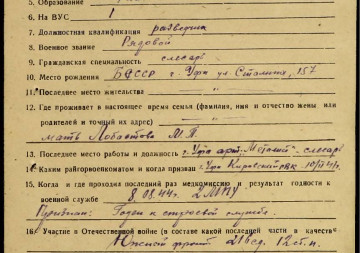 5. Образование
6. На ВУС 1
7. Должностная квалификация разведчик
8. Военное звание Рядовой
9. Гражданская специальность слесарь
10. Место рождения БАССР г. Уфа ул. Сталина, 157
11. Последнее место жительства "
12. Где проживает в настоящее время семья (фамилия, имя и отчество жены или
родителей и точный их адрес)
мать Лобастова М. П.
13. Последнее место работы и должность г. Уфа арт. "Металист" слесарь
14. Каким райгорвоенкоматом и когда призван г. Уфа Кировский РВК
15. Когда и где проходил последний раз медкомиссию и результат годности к
военной службе 8.03.44г.
Признан: Годен к строевой службе.
16. Участие в Отечественной войне (в составе какой последней части в качестве
Южный фронт